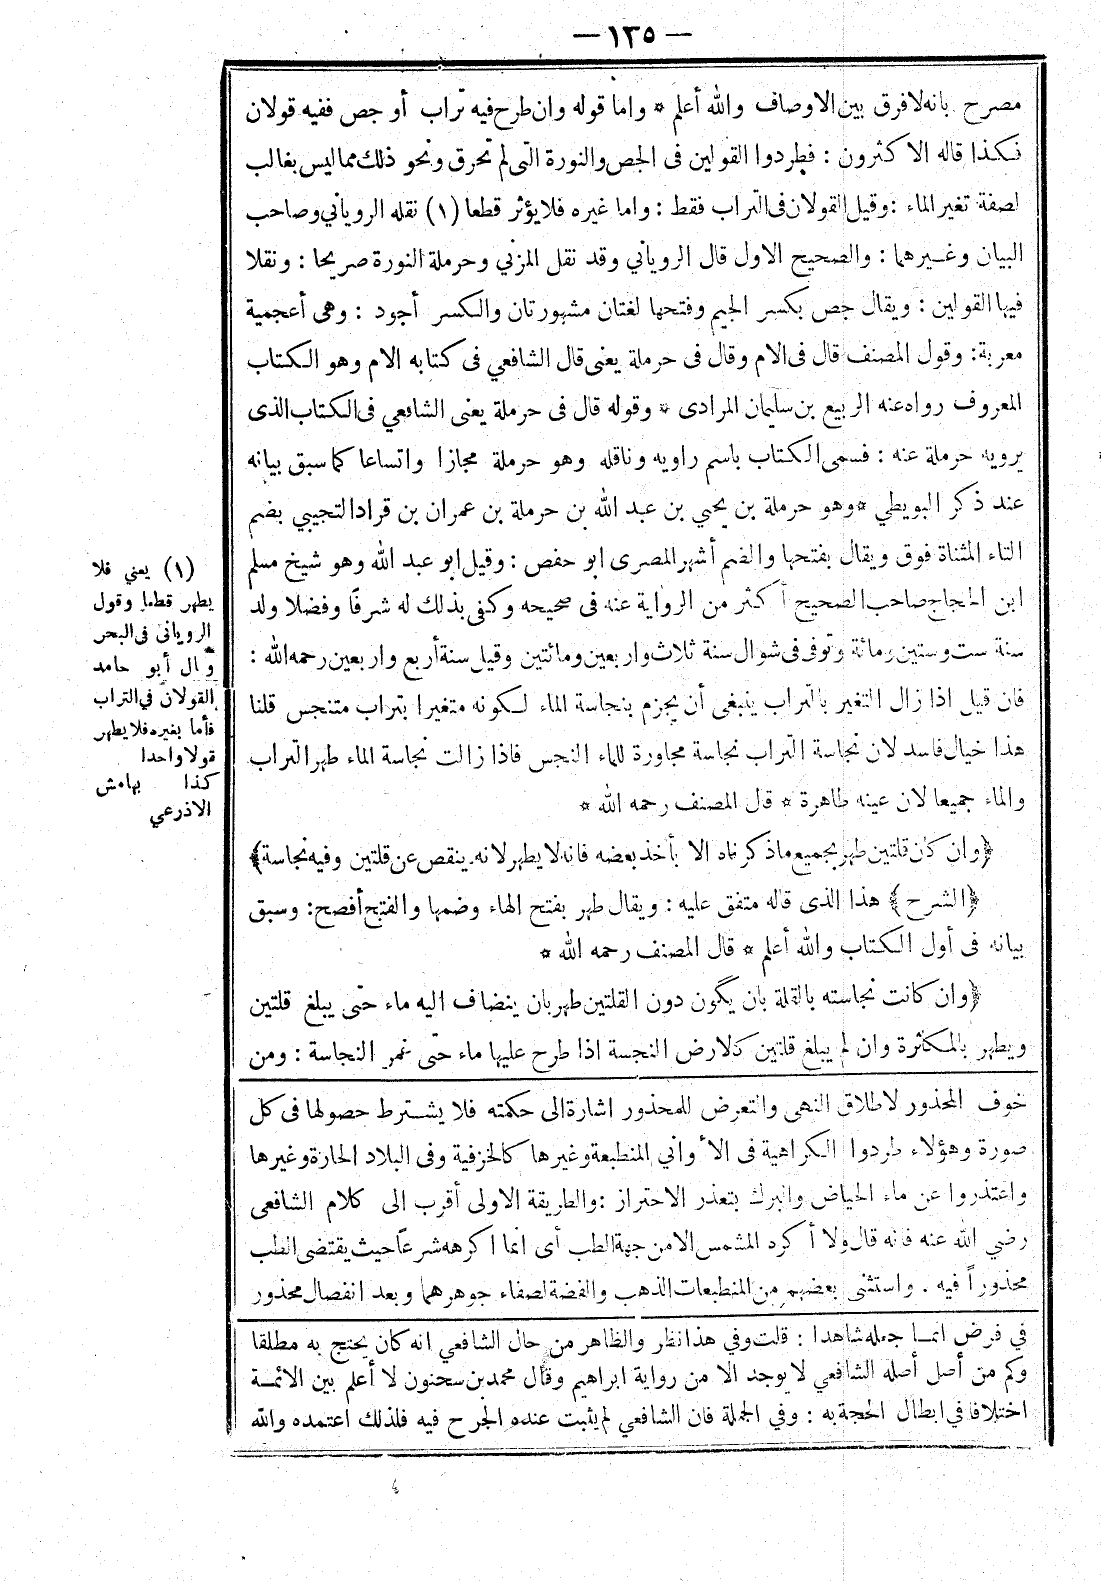 — ١٣٥ —
مصرح بانه لا فرق بين الاوصاف والله أعلم * واما قوله وان طرح فيه تراب أو جص ففيه قولان
فكذا قاله الاكثرون : فطردوا القولين فى الجص والنورة التى لم تحرق ونحو ذلك مما ليس بغالب
لصفة تغير الماء : وقيل القولان فى التراب فقط : واما غيره فلا يؤثر قطعا (١) نقله الرويانى وصاحب
البيان وغيرهما : والصحيح الاول قال الرويانى وقد نقل المزنى وحرملة النورة صريحا : ونقلا
فيها القولين : ويقال جص بكسر الجيم وفتحها لغتان مشهورتان والكسر أجود : وهى أعجمية
معربة: وقول المصنف قال فى الام وقال فى حرملة يعنى قال الشافعي فى كتابه الام وهو الكتاب
المعروف رواه عنه الربيع بن سليمان المرادى * وقوله قال فى حرملة يعنى الشافعي فى الكتاب الذى
يرويه حرملة عنه : فسمى الكتاب باسم راويه وناقله وهو حرملة مجازا واتساعا كما سبق بيانه
عند ذكر البويطي * وهو حرملة بن يحيى بن عبد الله بن حرملة بن عمران بن قراد التجيبي بضم
التاء المثناة فوق ويقال بفتحها والضم أشهر المصرى ابو حفص : وقيل ابو عبد الله وهو شيخ مسلم
ابن الحجاج صاحب الصحيح أكثر من الرواية عنه فى صحيحه وكفى بذلك له شرفا وفضلا ولد
سنة ست وستين ومائة وتوفى فى شوال سنة ثلاث واربعين ومائتين وقيل سنة أربع واربعين رحمه الله :
فان قيل اذا زال التغير بالتراب ينبغى أن يجزم بنجاسة الماء لكونه متغيرا بتراب متنجس قلنا
هذا خيال فاسد لان نجاسة التراب نجاسة مجاورة للماء النجس فاذا زالت نجاسة الماء طهر التراب
والماء جميعا لان عينه طاهرة * قال المصنف رحمه الله *
﴿وان كان قلتين طهر بجميع ماذكرناه الا بأخذ بعضه فانه لا يطهر لانه ينقص عن قلتين وفيه نجاسة﴾
﴿الشرح﴾ هذا الذى قاله متفق عليه : ويقال طهر بفتح الهاء وضمها والفتح أفصح: وسبق
بيانه فى أول الكتاب والله أعلم * قال المصنف رحمه الله *
﴿وان كانت نجاسته بالقلة بان يكون دون القلتين طهر بان ينضاف اليه ماء حتى يبلغ قلتين
ويطهر بالمكاثرة وان لم يبلغ قلتين كالارض النجسة اذا طرح عليها ماء حتى غمر النجاسة : ومن
(١) يعني فلا
يطهر قطعا وقول
الرويانى فى البحر
وقال أبو حامد
القولان في التراب
فأما بغيره فلا يطهر
قولا واحدا
كذا بهامش
الاذرعي
خوف المحذور لاطلاق النهى والتعرض للمحذور اشارة الى حكمته فلا يشترط حصولها فى كل
صورة وهؤلاء طردوا الكراهية فى الأواني المنطبعة وغيرها كالخزفية وفى البلاد الحارة وغيرها
واعتذروا عن ماء الحياض والبرك بتعذر الاحتراز : والطريقة الاولى أقرب الى كلام الشافعى
رضي الله عنه فانه قال ولا أكره المشمس الا من جهة الطب أى انما اكرهه شرعاً حيث يقتضى الطب
محذوراً فيه . واستثنى بعضهم من المنطبعات الذهب والفضة لصفاء جوهرهما وبعد انفصال محذور
في فرض انما جعله شاهدا : قلت وفي هذا نظر والظاهر من حال الشافعي انه كان يحتج به مطلقا
وكم من أصل أصله الشافعي لا يوجد الا من رواية ابراهيم وقال محمد بن سحنون لا أعلم بين الائمة
اختلافا في ابطال الحجة به : وفي الجملة فان الشافعي لم يثبت عنده الجرح فيه فلذلك اعتمده والله